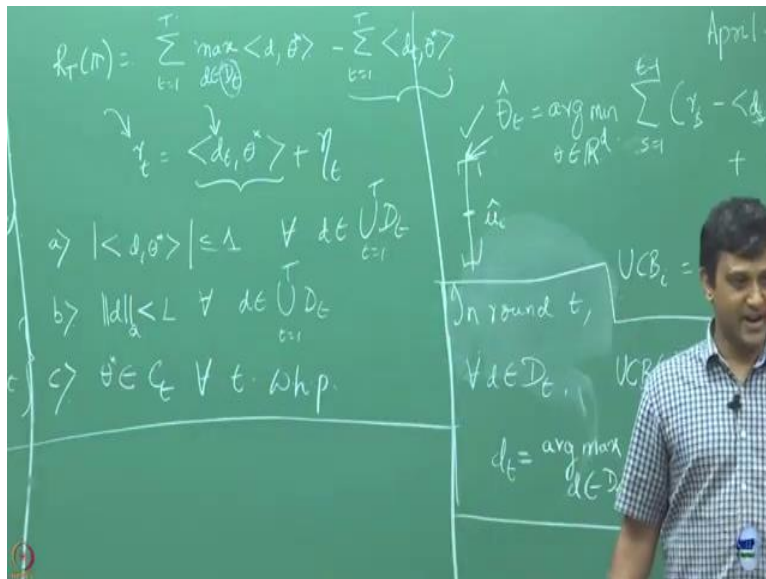 R_T(π) = Σ_{t=1}^{T} max_{d∈D_t} <d, θ*> - Σ_{t=1}^{T} <d_t, θ*>
r_t = <d_t, θ*> + η_t
a> |<d, θ*>| ≤ 1 ∀ d∈ ∪_{t=1}^{T} D_t
b> ||d||_2 < L ∀ d∈ ∪_{t=1}^{T} D_t
c> θ* ∈ C_t ∀ t. whp.
April
θ̂_t = arg min_{θ∈R^d} Σ_{s=1}^{t-1} (r_s - <d_s
+
UCB_i =
In round t,
∀ d∈D_t, UCB
d_t = arg max_{d∈D